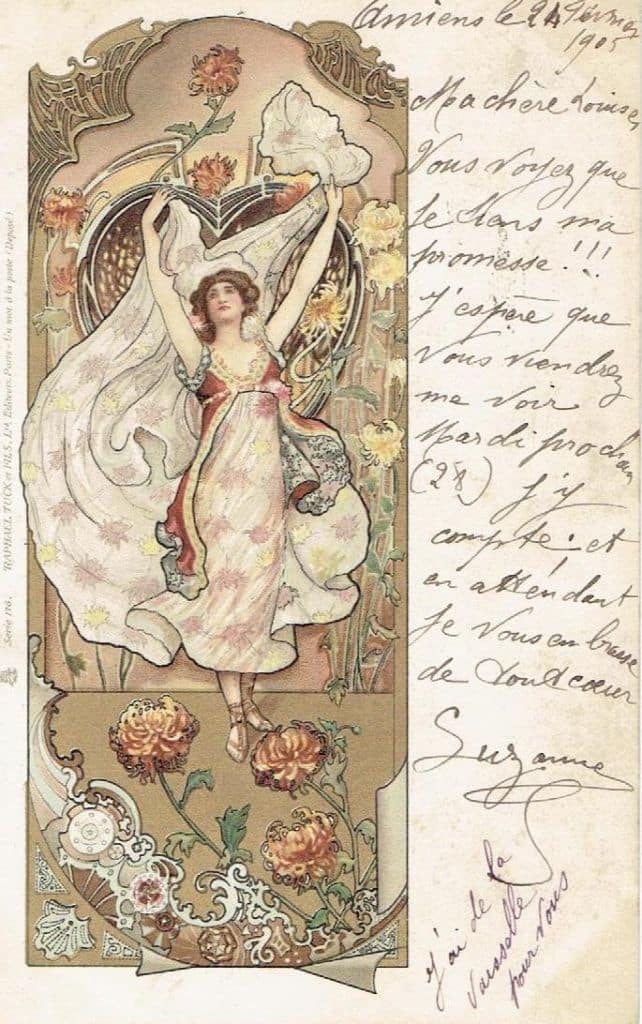 Amiens le 24 Février
1905
Ma chère Louise,
Vous voyez que
je tiens ma
promesse!!!
J'espère que
vous viendrez
me voir
Mardi prochain
(28) j'y
compte. et
en attendant
je vous embrasse
de tout cœur
Suzanne
j'ai de la
vaisselle
pour vous
Serie 178. RAPHAEL TUCK et FILS, Ld, Editeurs, Paris - Un mot à la poste (Déposé)